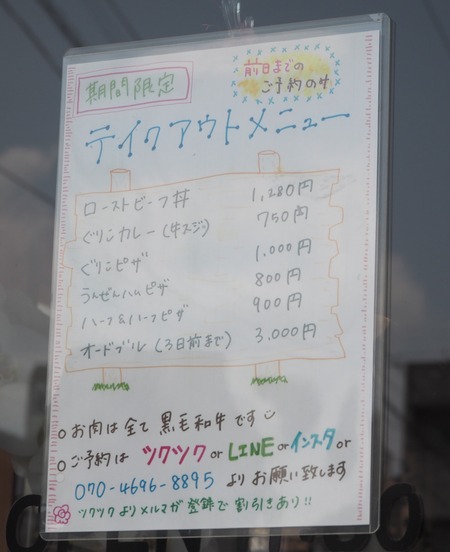 期間限定
前日までの
ご予約のみ
テイクアウトメニュー
ローストビーフ丼 1,280円
ぐりこカレー(牛スジ) 750円
ぐりこピザ 1,000円
うんぜんハムピザ 800円
ハーフ&ハーフピザ 900円
オードブル(3日前まで) 3,000円
○お肉は全て黒毛和牛です
○ご予約は ツクツク or LINE or インスタ or
070-4696-8895 よりお願い致します
ツクツクよりメルマガ登録で割引きあり!!